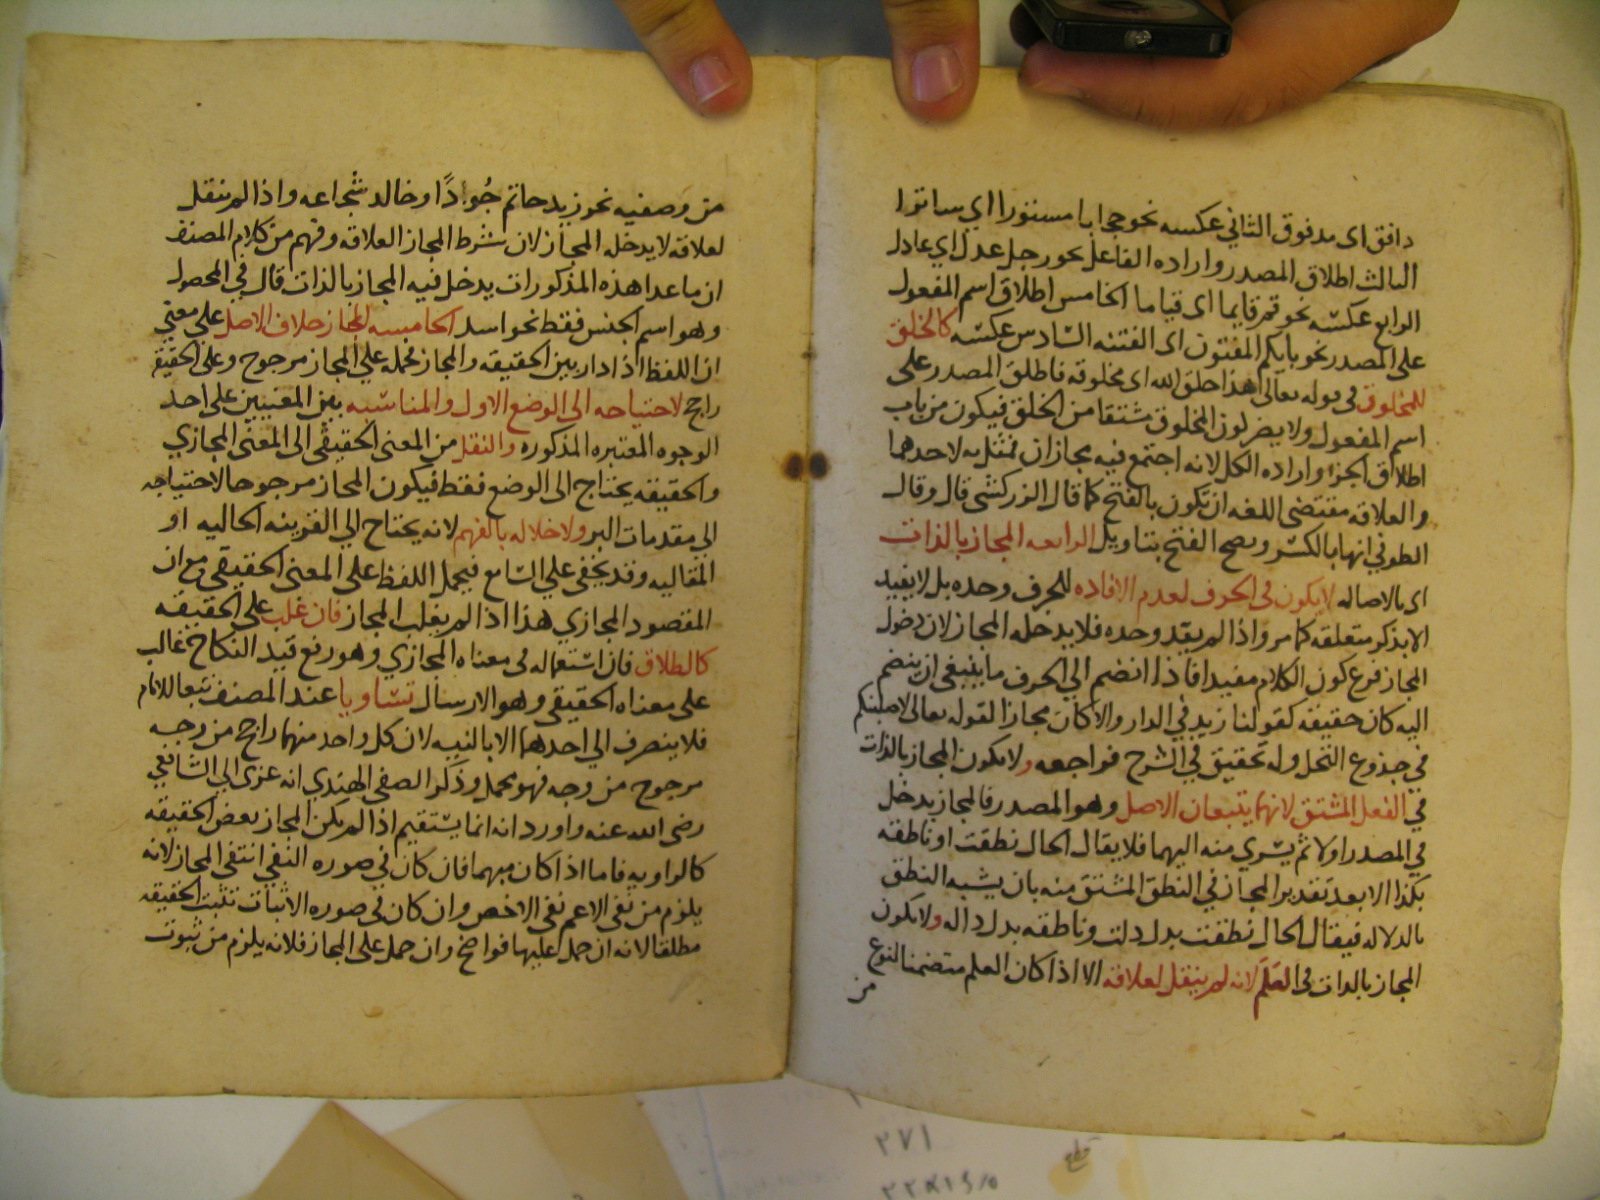 دافق اى مدفوق الثاني عكسه نحو حجابا مستورا اي ساترا
الثالث اطلاق المصدر وارادة الفاعل نحو رجل عدل اي عادل
الرابع عكسه نحو قم قايما اى قياما الخامس اطلاق اسم المفعول
على المصدر نحو بايكم المفتون اى الفتنه السادس عكسه كالخلق
للمخلوق فى قوله تعالى هذا خلق الله اى مخلوقه فاطلق المصدر على
اسم المفعول ولا يضر لون المخلوق مشتقا من الخلق فيكون من باب
اطلاق الجزء واراده الكل لانه اجتمع فيه مجازان فمثل به لاحدهما
والعلاقه مقتضى اللغه ان تكون بالفتح كما قال الزركشى قال وقال
الطوفي انها بالكسر ويصح الفتح بتاويل الرابعه المجاز بالذات
اى بالاصاله لا يكون فى الحرف لعدم الافاده للحرف وحده بل لا يفيد
الا بذكر متعلقه كما مر واذا لم يفد وحده فلا يدخله المجاز لان دخول
المجاز فرع كون الكلام مفيدا فاذا انضم الي الحرف ما ينبغى ان ينضم
اليه كان حقيقه كقولنا زيد في الدار والا كان مجازا لقوله تعالى لاصلبنكم
في جذوع النخل وله تحقيق في الشرح فراجعه ولا يكون المجاز بالذات
في الفعل المشتق لانهما يتبعان الاصل وهو المصدر فالمجاز يدخل
في المصدر اولا ثم يسري منه اليهما فلا يقال الحال نطقت او ناطقه
بكذا الا بعد تقدير المجاز في النطق المشتق منه بان يشبه النطق
بالدلاله فيقال الحال نطقت بدل دلت وناطقه بدل داله ولا يكون
المجاز بالذات فى العلم لانه لم ينقل لعلاقه الا اذا كان العلم متضمنا لنوع
من
من وصفيه نحو زيد حاتم جُوادًا وخالد شجاعه واذا لم ينقل
لعلاقه لا يدخله المجاز لان شرط المجاز العلاقه وفهم من كلام المصنف
ان ماعدا هذه المذكورات يدخل فيه المجاز بالذات قال في المحصول
وهو اسم الجنس فقط نحو اسد الخامسه المجاز خلاف الاصل على معني
ان اللفظ اذا دار بين الحقيقه والمجاز فحمله علي المجاز مرجوح وعلى الحقيقه
راجح لاحتياجه الى الوضع الاول والمناسبه بين المعنيين على احد
الوجوه المعتبره المذكوره والنقل من المعنى الحقيقى الى المعنى المجازي
والحقيقه يحتاج الى الوضع فقط فيكون المجاز مرجوحا لاحتياجه
الى مقدمات اكبر ولاخلاله بالفهم لانه يحتاج الي القرينه الحاليه او
المقاليه وقد يخفى علي السامع فيحمل اللفظ على المعنى الحقيقي مع ان
المقصود المجازي هذا اذا لم يغلب المجاز فان غلب على الحقيقه
كالطلاق فان استعماله فى معناه المجازي وهو رفع قيد النكاح غالب
على معناه الحقيقى وهو الارسال تساويا عند المصنف تبعا للامام
فلا ينصرف الي احدهما الا بالنيه لان كل واحد منهما راجح من وجه
مرجوح من وجه فهو مجمل وذكر الصفى الهندي انه عزى الى الشافعي
رضى الله عنه واورد انه انما يستقيم اذا لم يكن المجاز بعض الحقيقه
كالراويه فاما اذا كان مبهما فان كان في صوره النفي انتفى المجاز لانه
يلزم من نفى الاعم نفى الاخص وان كان فى صوره الاثبات تثبت الحقيقه
مطلقا لانه ان حمل عليها فواضح وان حمل على المجاز فلانه يلزم من ثبوت
٢٧١
قطع